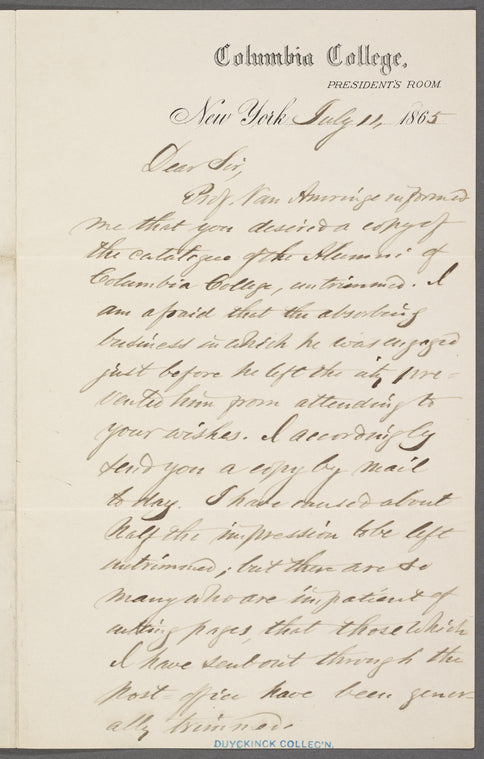 Columbia College,
PRESIDENT'S ROOM.
New York July 11, 1865
Dear Sir,
Prof. Van Amringe informed
me that you desired a copy of
the catalogue of the Alumni of
Columbia College, untrimmed. I
am afraid that the absorbing
business in which he was engaged
just before he left the city pre-
vented him from attending to
your wishes. I accordingly
send you a copy by mail
to day. I have caused about
half the impression to be left
untrimmed; but there are so
many who are impatient of
cutting pages, that those which
I have sent out through the
post-office have been gener-
ally trimmed.
DUYCKINCK COLLEC'N.